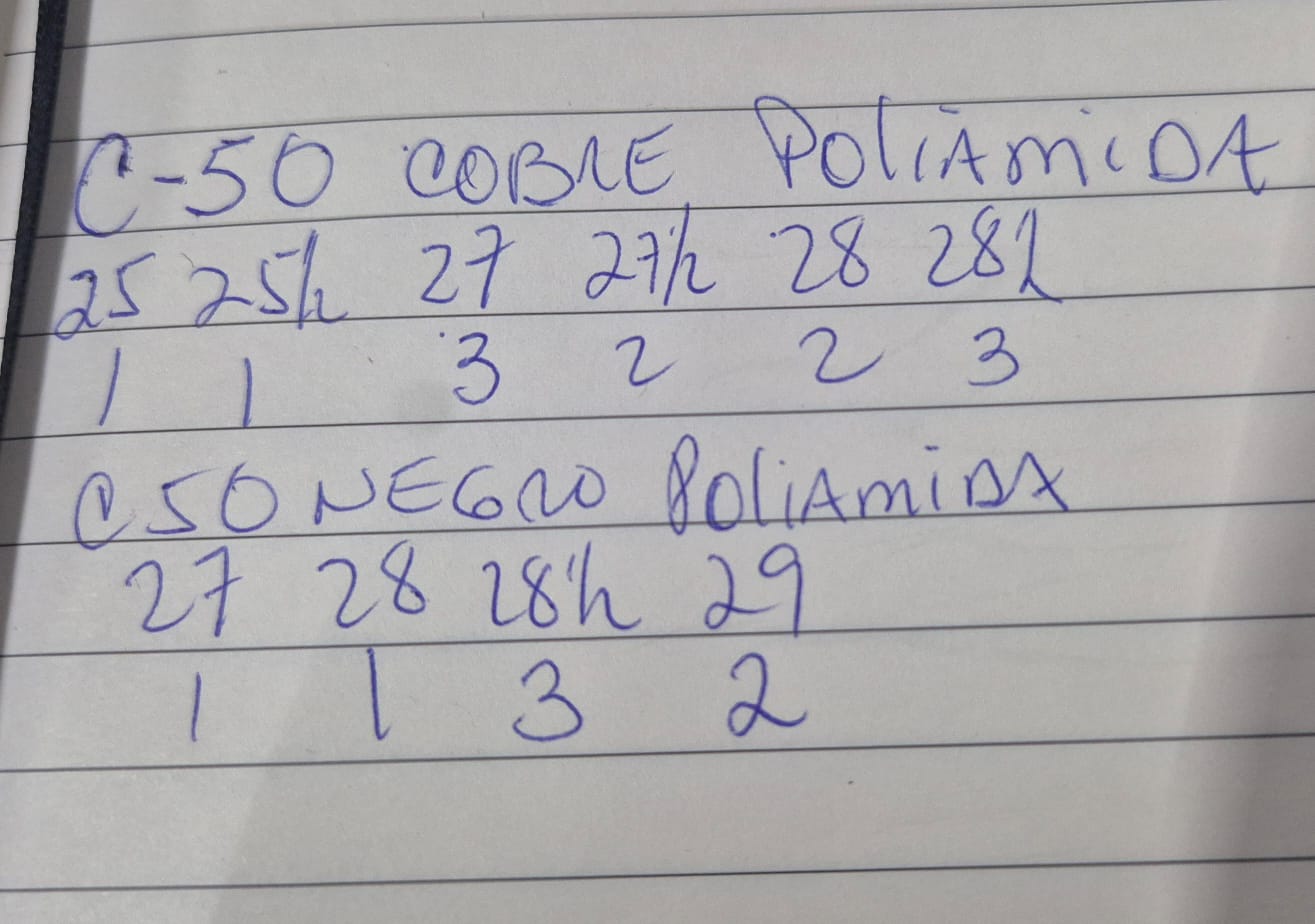 C-50 COBRE POLIAMIDA
25 25 1/2 27 27 1/2 28 28 1/2
1 1 3 2 2 3
C50 NEGRO POLIAMIDA
27 28 28 1/2 29
1 1 3 2